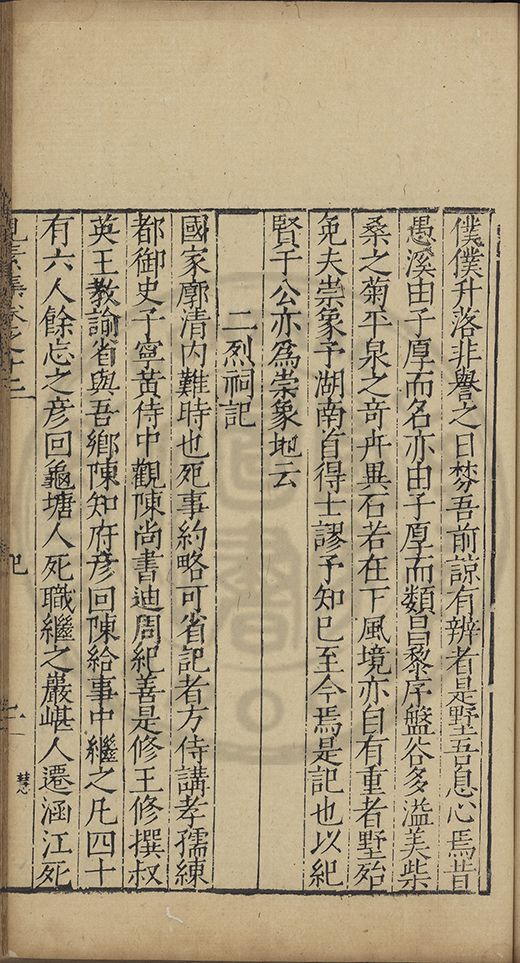 僕僕升落非譽之日棼吾前諒有辨者是墅吾息心焉昔
愚溪由子厚而名亦由子厚而纇昌黎序盤谷多溢美柴
桑之菊平泉之奇卉異石若在下風境亦自有重者墅殆
免夫崇象予湖南首得士謬予知巳至今焉是記也以紀
賢于公亦為崇象地云
二烈祠記
國家廓清内難時也死事約略可省記者方侍講孝孺練
都御史子寧黃侍中觀陳尚書迪周紀善是修王修撰权
英王教諭省與吾鄉陳知府彦回陳給事中繼之凡四十
有六人餘忘之彦回龜塘人死職繼之嚴㟏人遷涵江死
集卷之十二
巳